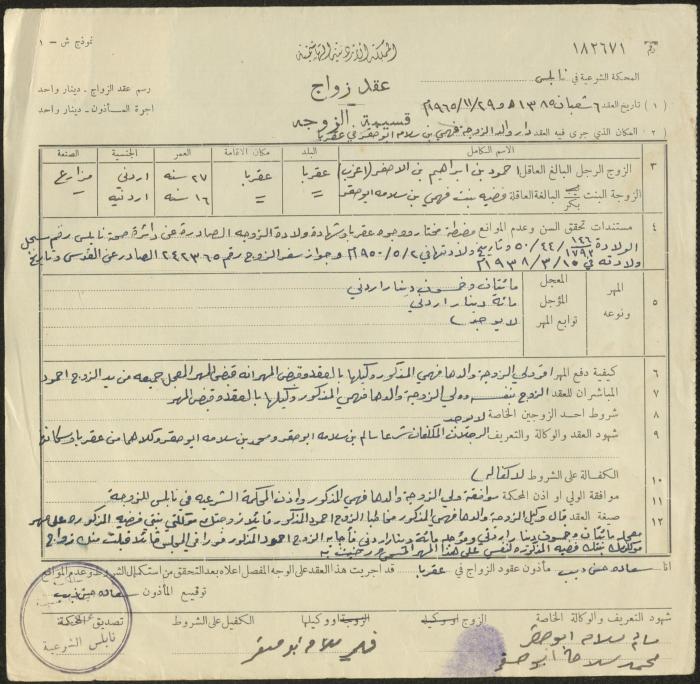 نموذج ش - ١
المملكة الأردنية الهاشمية
رقم ١٨٢٦٧١
المحكمة الشرعية في نابلس
عقد زواج
رسم عقد الزواج - دينار واحد
اجرة المأذون - دينار واحد
( ١ ) تاريخ العقد ٦ شعبان ١٣٨٥ هـ و ٢٩/١١/١٩٦٥ م
قسيمة الزوجه
( ٢ ) المكان الذي جرى فيه العقد دار والد الزوجة فهمي بن سلامه ابو صقر في عقربا
الاسم الكامل البلد مكان الاقامة العمر الجنسية الصنعة
٣ الزوج الرجل البالغ العاقل احمود بن ابراهيم بن الاصفر (اعزب) عقربا عقربا ٢٧ سنه اردني مزارع
الزوجة البنت بكر البالغة العاقلة فضيه بنت فهمي بن سلامه ابو صقر = = ١٦ سنه اردنيه
٤ مستندات تحقق السن وعدم الموانع مضبطة مختار ووجوه عقربا وشهادة ولادة الزوجه الصادرة عن دائرة صحة نابلس رقم سجل
الولادة وتاريخ ولادتها في ٢/٥/١٩٥٠ م وجواز سفر الزوج رقم ٢٤٢٣٦٥ الصادر عن القدس وتاريخ
ولادته في ١٥/٣/١٩٣٨ م
٥ المهر ونوعه
المعجل مائتان وخمسون دينار اردني
المؤجل مائة دينار اردني
توابع المهر لا يوجد
٦ كيفية دفع المهر اقر ولي الزوجة والدها فهمي المذكور وكيلها بالعقد وقبض المهر انه قبض المهر المعجل جميعه من يد الزوج احمود
٧ المباشران للعقد الزوج بنفسه وولي الزوجة والدها فهمي المذكور وكيلها بالعقد وقبض المهر
٨ شروط احد الزوجين الخاصة لا يوجد
٩ شهود العقد والوكالة والتعريف الرجلان المكلفان شرعا سالم بن سلامه ابو صقر ومحمد بن سلامه ابو صقر وكلاهما من عقربا وسكانها
١٠ الكفالة على الشروط لا كفاله
١١ موافقة الولي او اذن المحكمة موافقة ولي الزوجة والدها فهمي المذكور واذن المحكمة الشرعيه في نابلس للزوجة
١٢ صيغة العقد قال وكيل الزوجة والدها فهمي المذكور مخاطبا الزوج احمود المذكور قائلا زوجتك موكلتي بنتي فضيه المذكوره على مهر
معجل مائتان وخمسون دينار اردني ومؤجله مائة دينار اردني فأجابه الزوج احمود المذكور فورا في المجلس قائلا قبلت منك زواج
موكلتك بنتك فضيه المذكوره لنفسي على هذا المهر المسمى ورضيت به
انا مأذون عقود الزواج في عقربا قد اجريت هذا العقد على الوجه المفصل اعلاه بعد التحقق من استكمال الشروط وعدم الموانع
توقيع المأذون
شهود التعريف والوكالة الخاصة
الزوج او وكيله
الزوجة او وكيلها
الكفيل على الشروط
تصديق المحكمة
سالم سلامه ابو صقر
محمد سلامة ابو صقر
فهمي سلامه ابو صقر
نابلس الشرعية